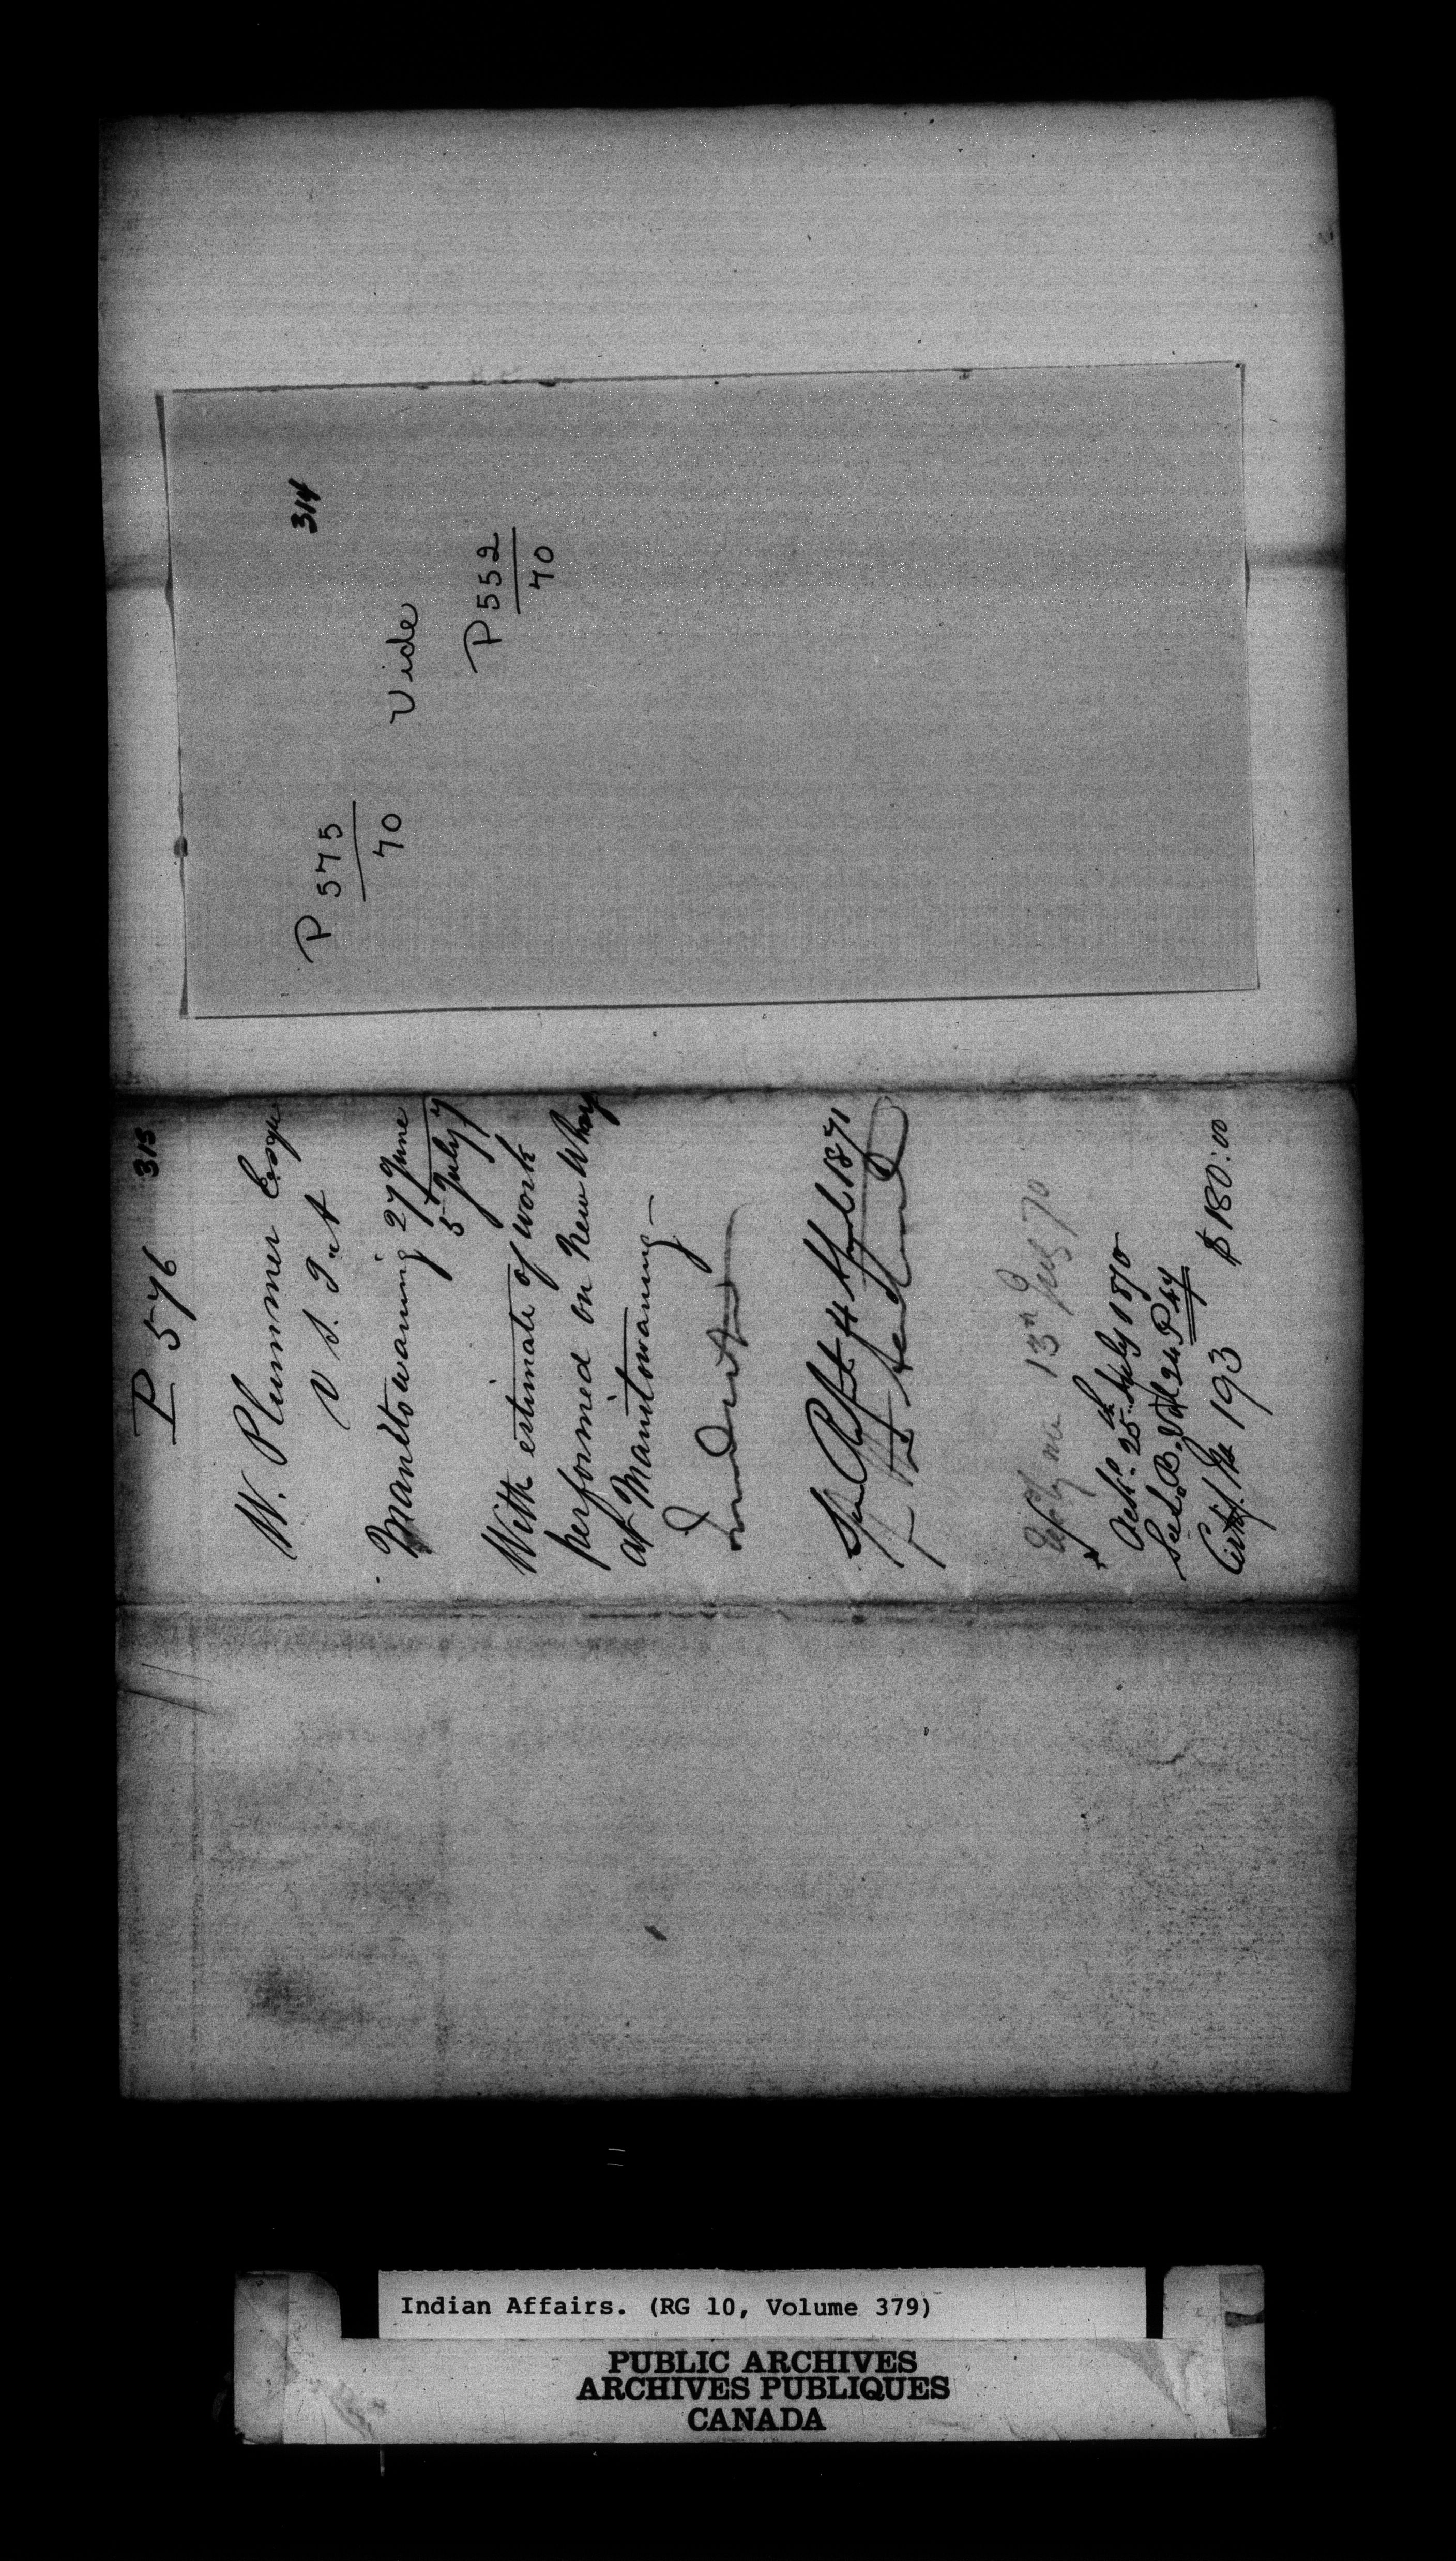 314
P 575
70
Vide
P 552
70
315
P 576
W. Plummer Esqre
V. S. I
Manitowaning 27 June
5 July
With estimate of work
performed on New Wharf
at Manitowaning—
4 1871
13th July 70
25th July 1870
24 P 44
Certif. No 193 $180:00
Indian Affairs. (RG 10, Volume 379)
PUBLIC ARCHIVES
ARCHIVES PUBLIQUES
CANADA